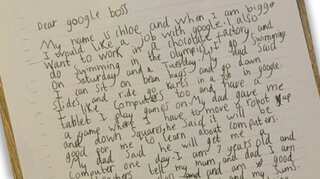 Dear google boss
My name is chloe and when I am bigger
I would like a job with google. I also
want to work in a chocolate factory and
do swimming in the olympics. I go swimming
on Saturday and a Tuesday. My dad said
I can sit on bean bags and go down
slides and ride go karts in a job in google.
I like computers too and have a
tablet I play games on. My dad gave me
a game where I have to move a robot up
and down squares, he said it will be
good for me to learn about computers.
My dad said he will get me a
computer one day. I am 7 years old and
teachers tell my mum and dad
am good
and my sums.